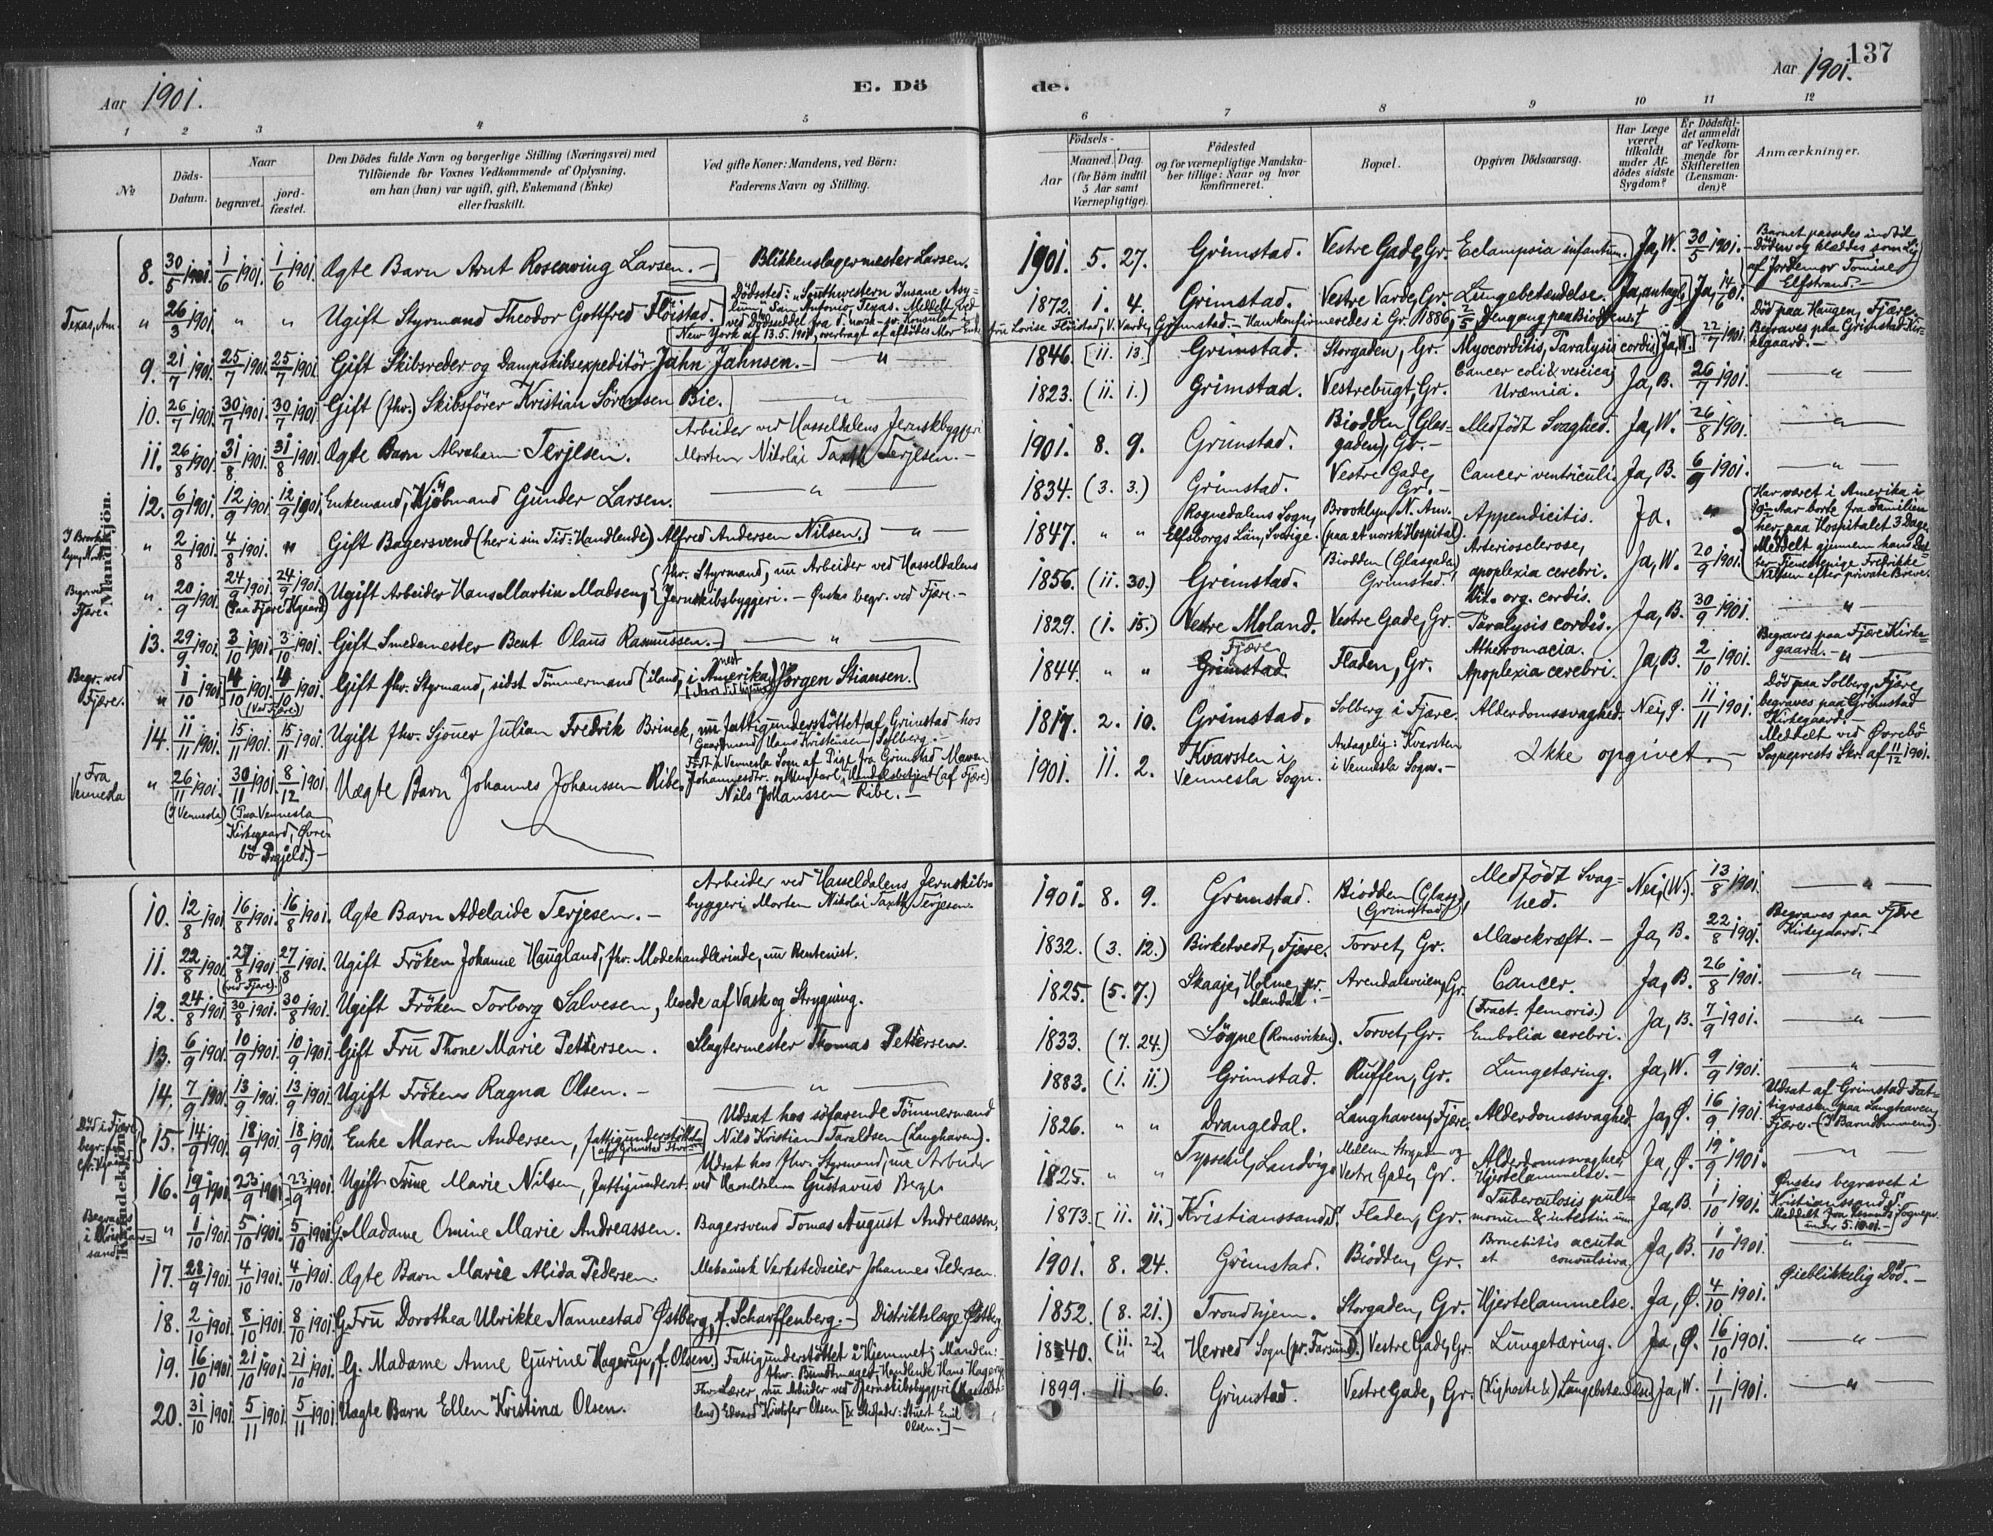 Aar 1901.
E. Dö
de.
Aar 1901.
137
1 2 3 4 5 6 7 8 9 10 11 12
No
Döds-Datum.
Naar
begravet.
jord-fæstet.
Den Dödes fulde Navn og borgerlige Stilling (Næringsvei) med
Tilföiende for Voxnes Vedkommende af Oplysning,
om han (hun) var ugift, gift, Enkemand (Enke)
eller fraskilt.
Ved gifte Koner: Mandens, ved Börn:
Faderens Navn og Stilling.
Födsels-
Aar
Maaned. Dag.
(for Börn indtil
5 Aar samt
Værnepligtige).
Födested
og for værnepligtige Mandska-
ber tillige: Naar og hvor
konfirmeret.
Bopæl.
Opgiven Dödsaarsag.
Har Læge
været
tilkaldt
under Af-
dödes sidste
Sygdom?
Er Dödsfal-
det anmeldt
af Vedkom-
mende for
Skifteretten
(Lensman-
den)?
Anmærkninger.
Mandkjön.
8. 30/5 1901 1/6 1901. 1/6 1901. Ægte Barn Arnt Rosenving Larsen. — Blikkenslagermester Larsen. 1901. 5. 27. Grimstad. Vestre Gade, Gr. Eclampsia infantum. Ja, W. 30/5 1901. Barnet passedes indtil Döden og klæddes som Lig af Jordemor Tomine Elfstrand. —
Texas, Am. " 26/3 1901. " " Ugift Styrmand Theodor Gottfred Flöistad. Dödssted: "Southwestern Insane Asylum" San Antonio, Texas. Meddelt ved Dödsseddel fra d. norsk-sv. Konsulat i New York af 13.5. 1901, overbragt af afdödes Mor Enkefru Lovise Flöistad, V. Varde, Grimstad. — Han konfirmeredes i Gr. 1886, 1872. 1. 4. Grimstad. Vestre Varde, Gr. Lungebetændelse. Ja, antagl. Ja, 14/6 01.
9. 21/7 1901. 25/7 1901 25/7 1901. Gift Skibsreder og Dampskibsexpeditör Jahn Jahnsen. — " 1846. [11. 13.] Grimstad. Storgaden, Gr. Myocorditis, Paralysis cordis. Ja, W. 22/7 1901. Död paa Haugen, Fjære. Begraves paa Grimstad Kirkegaard. —
10. 26/7 1901. 30/7 1901 30/7 1901. Gift (fhv.) Skibsförer Kristian Sörensen Bie. " 1823. (11. 1.) Grimstad. Vestrebugt, Gr. Cancer coli & vesicæ, Uræmia. Ja, B. 26/7 1901. — " —
11. 26/8 1901. 31/8 1901. 31/8 1901. Ægte Barn Abraham Terjesen. Arbeider ved Hasseldalens Jernskbyggeri Morten Nikolai Taxth Terjesen. — 1901. 8. 9. Grimstad. Biodden (Glasgaden), Gr. — Medfödt Svaghed. Ja, W. 26/8 1901. — " —
12. 6/9 1901. 12/9 1901. 12/9 1901. Enkemand, Kjöbmand Gunder Larsen. — " — 1834. (3. 3.) Grimstad. Vestre Gade, Gr. — Cancer ventriculi. Ja, B. 6/9 1901. — " —
" 2/8 1901. 4/8 1901. " Gift Bagersvend (her i sin Tid: Handlende) Alfred Andersen Nilsen. — " — 1847. " " Rognedalens Sogn, Elfsborgs Län, Sverige. Brooklyn, N. Am. (paa et norsk Hospital). Appendicitis. Ja. " Har været i Amerika i Aar borte fra Familien her, paa Hospitalet 3 Dage. Meddelt gjennem hans Datter Tjenestepige Fredrikke Nilsen efter private Breve.
Begr. ved Fjære. " 20/9 1901. 24/9 1901 24/9 1901 (Paa Fjære Kgaard) Ugift Arbeider Hans Martin Madsen, fhv. Styrmand, nu Arbeider ved Hasseldalens Jernskibsbyggeri. — Önskes begr. ved Fjære. — 1856. (11. 30.) Grimstad. Biodden (Glasgaden), Grimstad. Arteriosclerose, apoplexia cerebri. Ja, W. 20/9 1901.
13. 29/9 1901. 3/10 1901. 3/10 1901. Gift Smedemester Bent Olaus Rasmussen. — " — 1829. (1. 15.) Vestre Moland. Vestre Gade, Gr. Vit. org. cordis. Paralysis cordis. Ja, B. 30/9 1901. — " —
Begr. ved Fjære. " 1/10 1901. 4/10 1901. 4/10 1901. (Ved Fjære) Gift fhv. Styrmand, sidst Tömmermand (iland, i Amerika) Jörgen Stiansen. 1844. " " Fjære Grimstad. Fladen, Gr. Atheromacia. Apoplexia cerebri. Ja, B. 2/10 1901. Begraves paa Fjære Kirkegaard. — " —
14. 11/11 1901. 15/11 1901. 15/11 1901. Ugift fhv. Sjöner Julian Fredrik Brinck, nu Fattigunderstöttet af Grimstad hos Gaardmand Hans Kristensen, Solberg. — 1817. 2. 10. Grimstad. Solberg i Fjære. Alderdomssvaghed. Nei, Ø. 11/11 1901. Död paa Solberg, Fjære, begraves paa Grimstad Kirkegaard.
Fra Vennesla " 26/11 1901. (I Vennesla) 30/11 1901. 8/12 1901. (Paa Vennesla Kirkegaard, Øvrebö Prgjeld.) — Uægte Barn Johannes Johanssen Ribe. Födt i Vennesla Sogn af Pige fra Grimstad Maren Johannesdtr. og Nils Johanssen Ribe. — 1901. 11. 2. Kvarsten i Vennesla Sogn. Antagelig: Kvarsten i Vennesla Sogn. — Ikke opgivet. — Meddelt ved Øvrebö Sogneprests Skr. af 11/12 1901.
Kvindekjön.
10. 12/8 1901 16/8 1901 16/8 1901. Ægte Barn Adelaide Terjesen. — Arbeider ved Hasseldalens Jernskibsbyggeri Morten Nikolai Taxth Terjesen. 1901. 8. 9. Grimstad. Biodden (Glasg.) (Grimstad) Medfödt Svaghed. Nei, (W.) 13/8 1901. — " —
11. 22/8 1901. 27/8 1901 (ved Fjære) 27/8 1901. Ugift Fröken Johanne Haugland, fhv. Modehandlerinde, nu Rentenist. 1832. (3. 12.) Birketvedt, Fjære. Torvet, Gr. Mavekræft. — Ja, B. 22/8 1901. Begraves paa Fjære Kirkegaard. —
12. 24/8 1901. 30/8 1901. 30/8 1901. Ugift Fröken Torborg Salvesen, levede af Vask og Strygning. 1825. (5. 7.) Skaaje, Holme, pr. Mandal. — Arendalsveien, Gr. Cancer. Ja, B. 26/8 1901. — " —
13. 6/9 1901. 10/9 1901. 10/9 1901. Gift Fru Thone Marie Pettersen. Slagtermester Thomas Pettersen. 1833. (7. 24.) Sögne (Romsviken). Torvet, Gr. (Fract. femoris.) Embolia cerebri. Ja, B. 7/9 1901. — " —
14. 7/9 1901. 13/9 1901. 13/9 1901. Ugift Fröken Ragna Olsen. — — " — 1883. (1. 11.) Grimstad. Ruffen, Gr. Lungetæring. Ja, W. 9/9 1901. — " —
Död i Fjære, begr. paa 15. 14/9 1901. 18/9 1901. 18/9 1901. Enke Maren Andersen, fattigunderstöttet af Grimstad Udsat hos söfarende Tömmermand Nils Kristian Taraldsen (Langhaven). 1826. " " Drangedal. Langhaven, Fjære. Alderdomssvaghed. Ja, Ø. 16/9 1901. Udsat af Grimstad Fattigvæsen paa Langhaven, Fjære.
16. 19/9 1901 23/9 1901 23/9 1901. Ugift Trine Marie Nilsen, Fattigunderst. Udsat hos fhv. Styrmand, nu Arbeider ved Hasseldalen Gustavus Berge 1825. " " Landvig. Mellem Storgaden og Vestre Gade, Gr. Alderdomssvaghed, Hjertelammelse. Ja, Ø. 19/9 1901. — " —
Begraves i Kristianssand " 1/10 1901. 5/10 1901. 5/10 1901. G. Madame Omine Marie Andreassen. Bagersvend Tomas August Andreassen. 1873. [11. 11.] Kristianssand. Fladen, Gr. Tuberculosis pulmonum & intestinum Ja, B. 1/10 1901. Önskes begravet i Kristianssand S. under 5.10.01. —
17. 28/9 1901. 4/10 1901. 4/10 1901. Ægte Barn Marie Alida Pedersen. Mekanisk Verkstedseier Johannes Pedersen. 1901. 8. 24. Grimstad. Biodden, Gr. Bronchitis acuta et convulsiva Ja, B. 1/10 1901. — " —
18. 2/10 1901. 8/10 1901. 8/10 1901. G. Fru Dorothea Ulrikke Nannestad Østberg, f. Scharffenberg. — Distriktslæge Østberg. 1852. (8. 21.) Trondhjem. Storgaden, Gr. Hjertelammelse. Ja, Ø. 4/10 1901. Øieblikkelig Död. —
19. 16/10 1901. 21/10 1901. 21/10 1901. G. Madame Anne Gurine Hagerup, f. Olsen. Fattigunderstöttet i Hjemmet; Manden: fhv. Bundtmager, Handlende Hans Hagerup 1840. (11. 2) Herred Sogn (pr. Farsund). Vestre Gade, Gr. Lungetæring. Ja, Ø. 16/10 1901. — " —
20. 31/10 1901. 5/11 1901. 5/11 1901 Uægte Barn Ellen Kristina Olsen. Fhv. Lærer, nu Arbeider ved Jernskibsbyggeri (Hasseldalens) Edvard Kristofer Olsen [& Stedfader: Stuert Emil Olsen.] — 1899. 11. 6. Grimstad. Vestre Gade, Gr. Lungebetændelse Ja, W. 1/11 1901. — " —